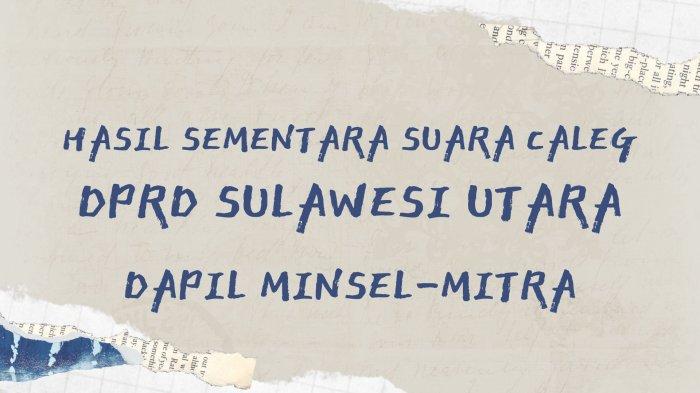 HASIL SEMENTARA SUARA CALEG
DPRD SULAWESI UTARA
DAPIL MINSEL-MITRA